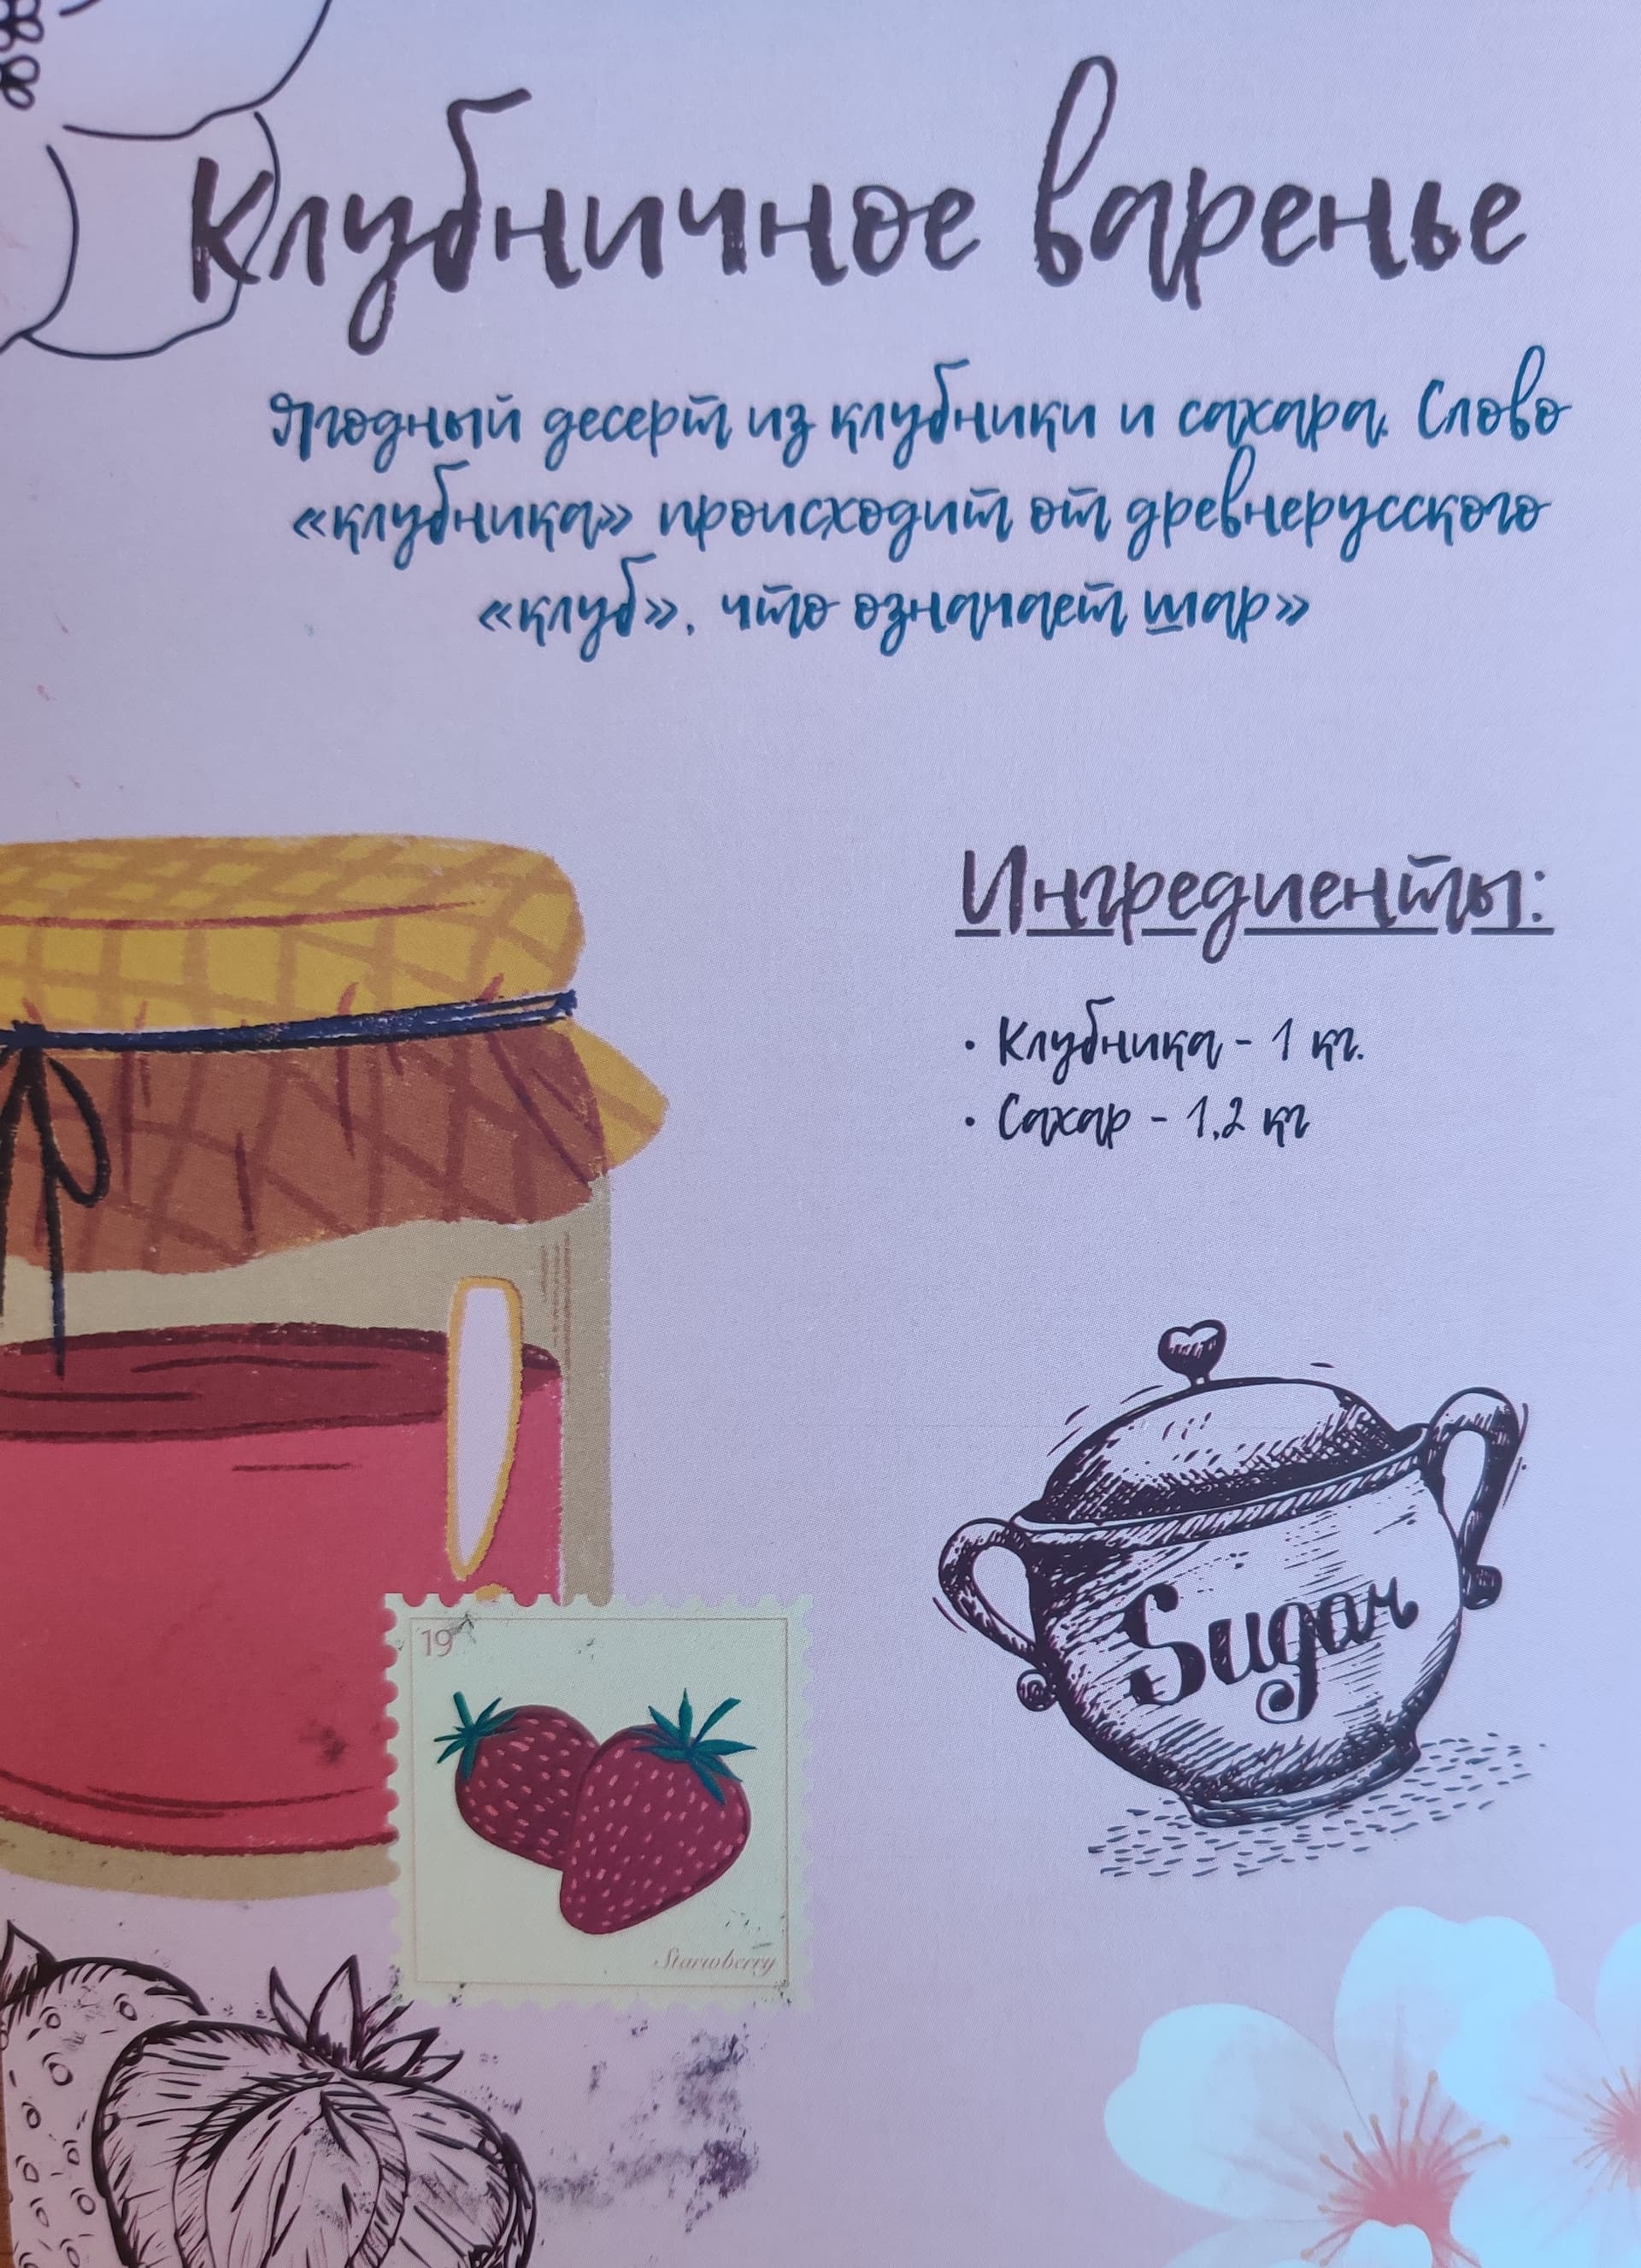 Клубничное варенье
Ягодный десерт из клубники и сахара. Слово
«клубника» происходит от древнерусского
«клуб», что означает шар»
Ингредиенты:
• Клубника - 1 кг.
• Сахар - 1,2 кг
Sugar
19
Starwberry